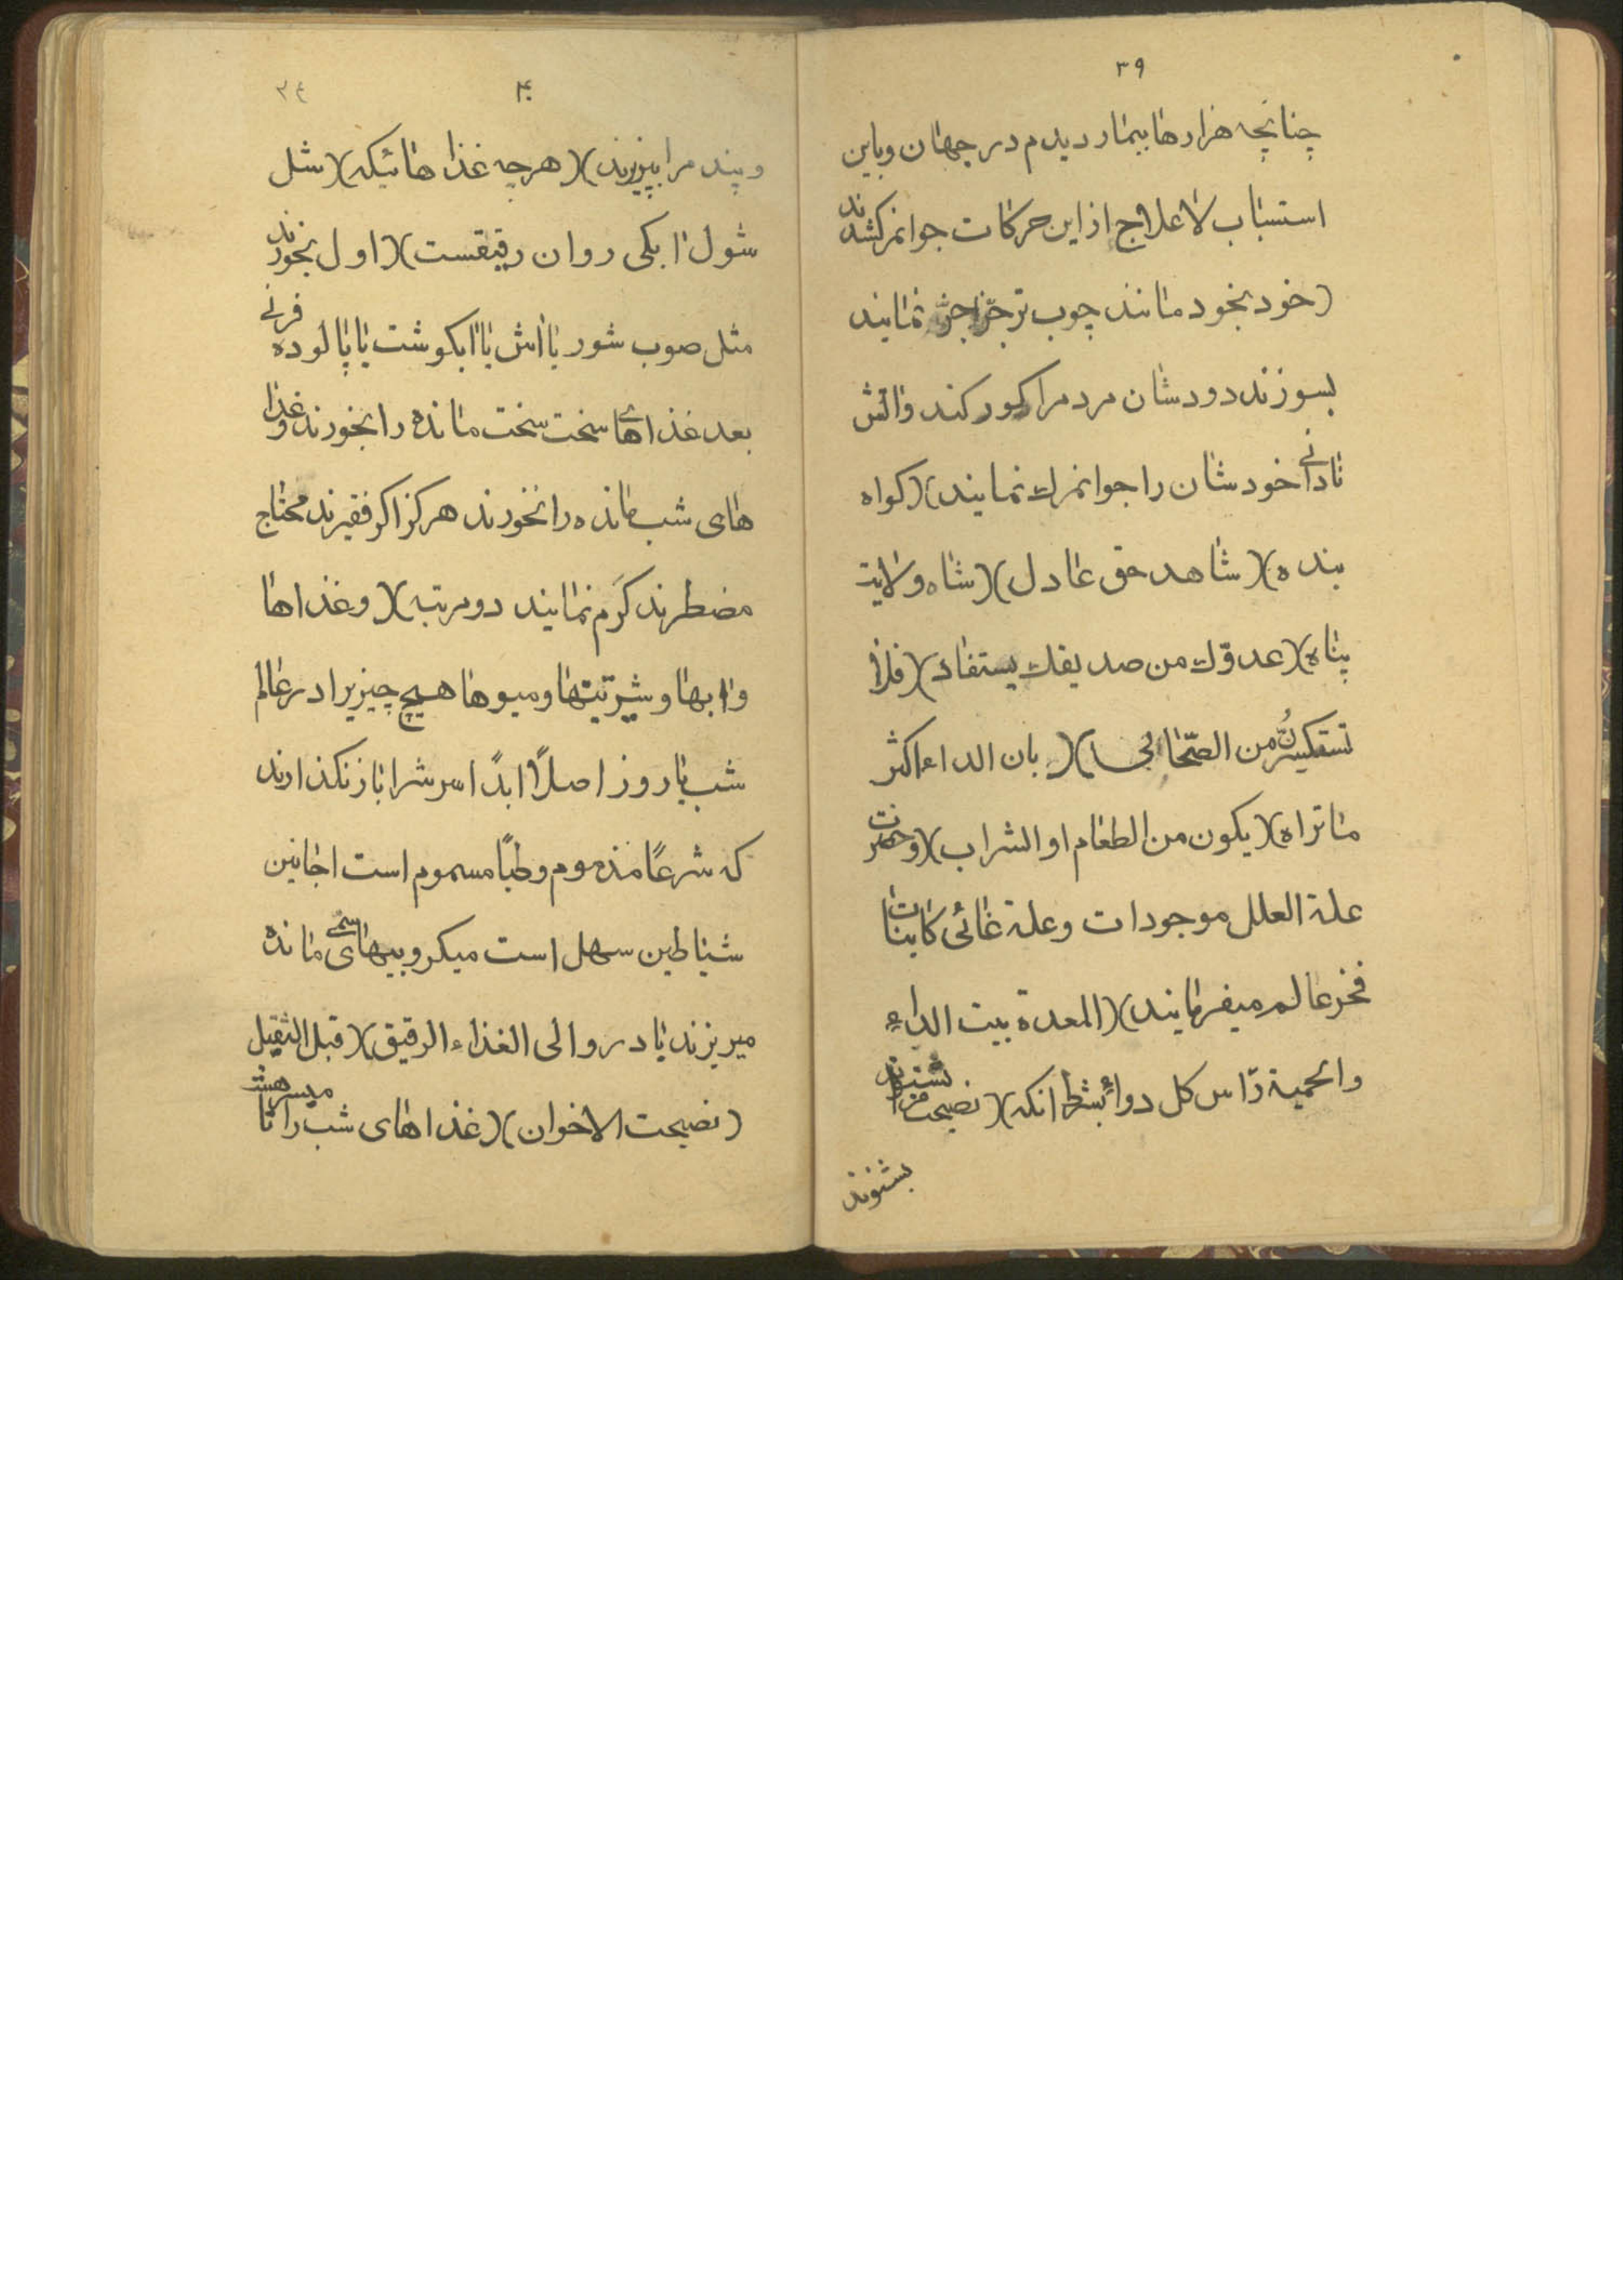 ۳۹
چنانچه هزارها بیمار دیدم در جهان و باین
استباب لاعلاج از این حرکات جوانمرکشدند
(خود بخود مانند چوب تر جزا جز نمایند
بسوزند دودشان مردمرا کور کند و اتش
نادانی خودشان را جوانمرك نمایند)(کواه
بنده)(شاهد حق عادل)(شاه ولایت
پناه)(عدوّك من صدیقك یستفاد)(فلا
تستکثرنُّ من الصّحاب)(بان الداء اکثر
ماتراه)(یکون من الطعام او الشراب)(وحضرت
علة العلل موجودات وعلة غائی کاینات
فخر عالم میفرمایند)(المعدة بیت الداء
والحمیة رٲس کل دواء بشرط انکه)(نصیحت مرا بشنوند
بشنوند
۴۰
۳٤
و پند مرا بپزیرند)(هرچه غذاهائیکه)(شل
شول ابکی روان رقیقست)(اول بخورند
مثل صوب شور یا اش یا ابکوشت یا پالوده فرنی
بعد غذاهای سخت سخت مانده را بخورند و غذا
های شب مانده را نخورند هرکز اکر فقیرند محتاج
مضطرند کَرم نمایند دو مرتبه)(و غذاها
و ابها و شیرینیها و میوها هیچ چیزیرا در عالم
شب یا روز اصلاً ابدًا سرشرا باز نکذارند
که شرعًا مذموم وطبًا مسموم است اجانین
شیاطین سهل است میکروبیهای سمی مانده
میریزند یا در والی الغذاء الرقیق)(قبل الثقیل
(نصیحت الاخوان)(غذاهای شب را تا میسرهست